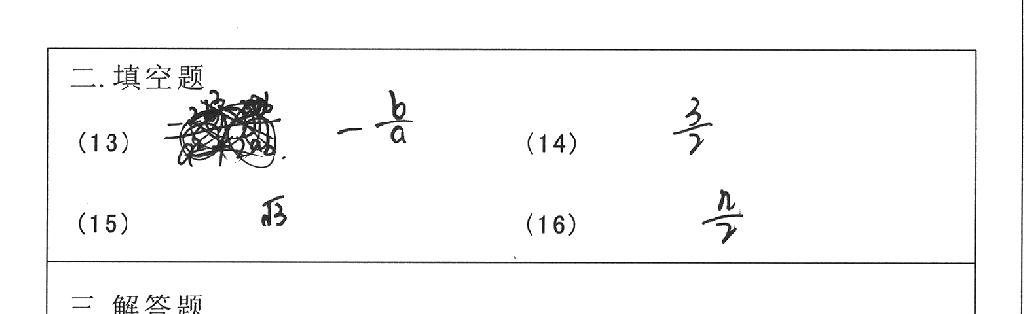 二.填空题
(13) -b/a (14) 3/2
(15) √3 (16) π/2
三.解答题